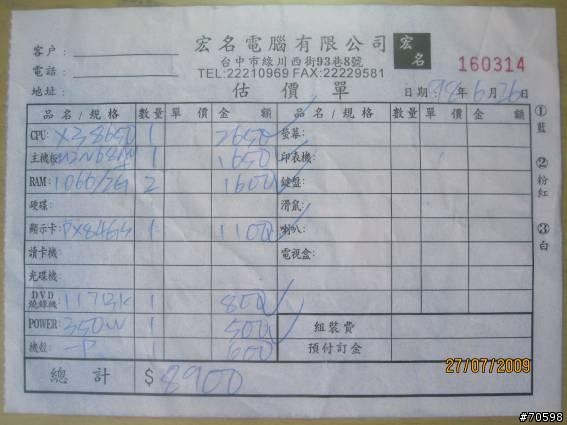 宏名電腦有限公司
宏名
台中市綠川西街93巷8號
TEL:22210969 FAX:22229581
160314
客户:
電話:
地址:
估價單
日期: 98年6月26日
品名/規格 數量 單價 金額 品名/規格 數量 單價 金額
CPU: X38650 1 2650 螢幕:
主機板: 1 1650 印表機:
RAM: 1066/2G 2 1600 鍵盤:
硬碟: 滑鼠:
顯示卡: 1 1100 喇叭:
讀卡機: 電視盒:
光碟機:
DVD燒錄機: 1 800
POWER: 350W 1 500 組裝費
機殼: 1 600 預付訂金
總計 $ 8900
①藍
②粉紅
③白
27/07/2009
#70598